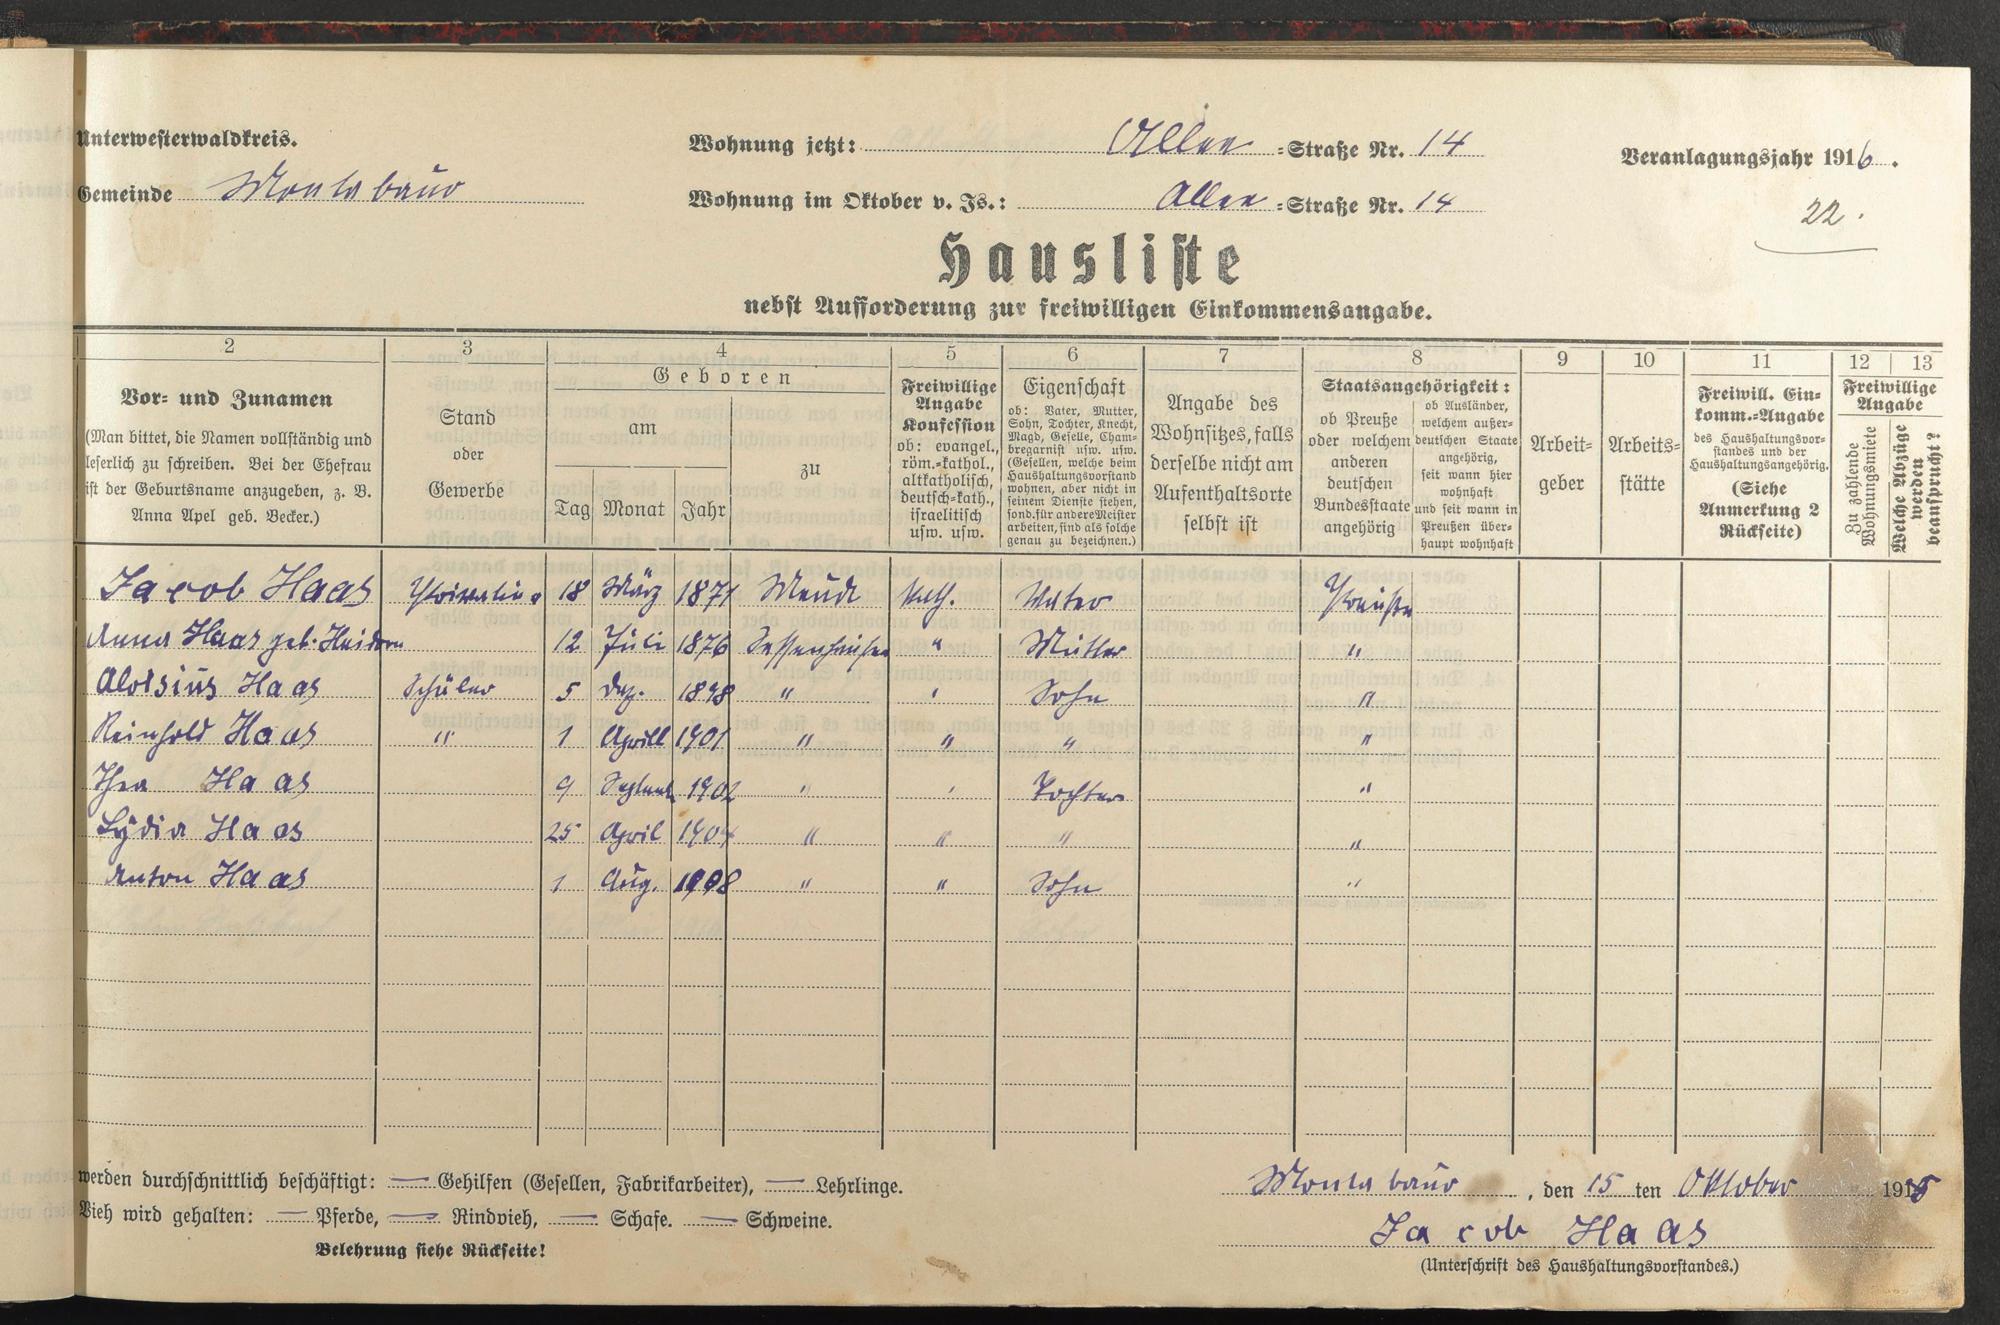 Unterwesterwaldkreis.
Gemeinde Montabaur
Wohnung jetzt: Allee =Straße Nr. 14
Wohnung im Oktober v. Js.: Allee =Straße Nr. 14
Veranlagungsjahr 1916.
22.
Hausliste
nebst Aufforderung zur freiwilligen Einkommensangabe.
2
Vor= und Zunamen
(Man bittet, die Namen vollständig und
leserlich zu schreiben. Bei der Ehefrau
ist der Geburtsname anzugeben, z. B.
Anna Apel geb. Becker.)
3
Stand
oder
Gewerbe
4
Geboren
am
Tag Monat Jahr
zu
5
Freiwillige
Angabe
Konfession
ob: evangel.,
röm.=kathol.,
altkatholisch,
deutsch=kath.,
israelitisch
usw. usw.
6
Eigenschaft
ob: Vater, Mutter,
Sohn, Tochter, Knecht,
Magd, Geselle, Cham=
bregarnist usw. usw.
(Gesellen, welche beim
Haushaltungsvorstand
wohnen, aber nicht in
seinem Dienste stehen,
sond. für andere Meister
arbeiten, sind als solche
genau zu bezeichnen.)
7
Angabe des
Wohnsitzes, falls
derselbe nicht am
Aufenthaltsorte
selbst ist
8
Staatsangehörigkeit:
ob Preuße
oder welchem
anderen
deutschen
Bundesstaate
angehörig
ob Ausländer,
welchem außer=
deutschen Staate
angehörig,
seit wann hier
wohnhaft
und seit wann in
Preußen über=
haupt wohnhaft
9
Arbeit=
geber
10
Arbeits=
stätte
11
Freiwill. Ein=
komm.=Angabe
des Haushaltungsvor=
standes und der
Haushaltungsangehörig.
(Siehe
Anmerkung 2
Rückseite)
12 13
Freiwillige
Angabe
Zu zahlende
Wohnungsmiete
Welche Abzüge
werden
beansprucht?
Jacob Haas 18 März 1871 Meudt Kath. Vater Preuße
Anna Haas geb. 12 Juli 1876 Sessenhausen " Mutter "
Aloisius Haas Schüler 5 Dez. 1898 " " Sohn "
Reinhold Haas " 1 Aprill 1901 " " " "
Thea Haas 9 1902 " " Tochter "
Lydia Haas 25 April 1904 " " " "
Anton Haas 1 Aug. 1908 " " Sohn "
werden durchschnittlich beschäftigt: — Gehilfen (Gesellen, Fabrikarbeiter), — Lehrlinge.
Vieh wird gehalten: — Pferde, — Rindvieh, — Schafe. — Schweine.
Belehrung siehe Rückseite!
Montabaur, den 15 ten Oktober 1915
Jacob Haas
(Unterschrift des Haushaltungsvorstandes.)